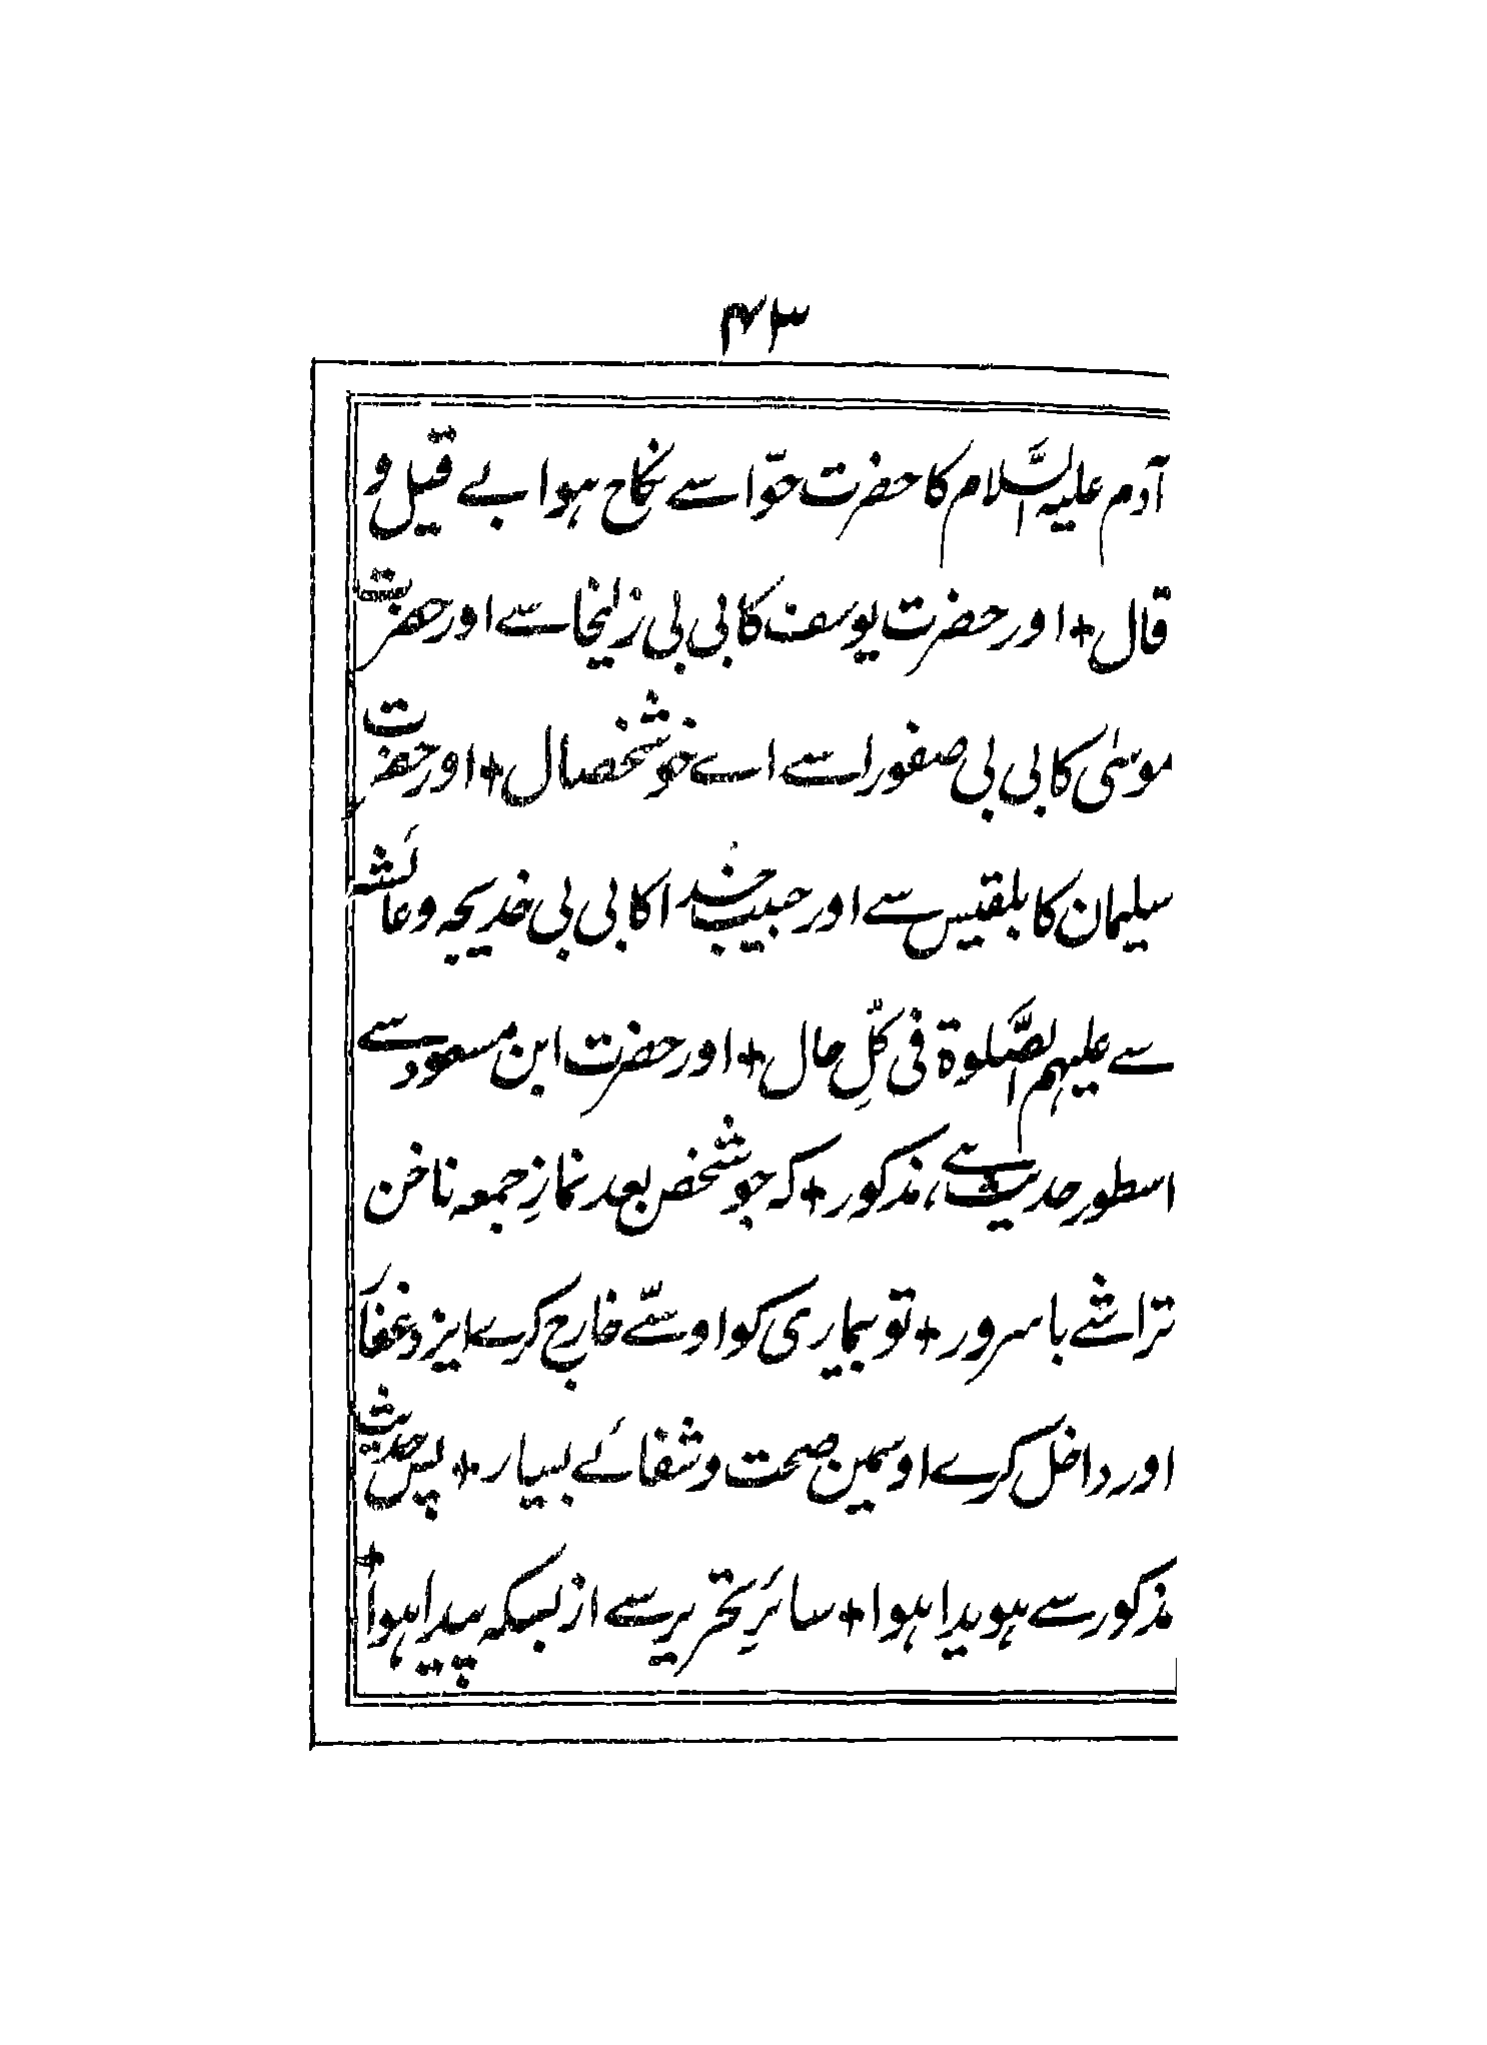 ۴۳
آدم علیہ السَّلام کا حضرت حوّا سے نکاح ہوا بے قیل و
قال + اور حضرت یوسف کا بی بی زلیخا سے اور حضرت
موسیٰ کا بی بی صفورا سے اے خوشخصال + اور حضرت
سیلمان کا بلقیس سے اور حبیب خدا کا بی بی خدیجہ و عائشہ
سے علیہم الصَّلوة فی کُلِّ حال + اور حضرت ابن مسعود سے
اسطور حدیث ہے، مذکور + کہ جو شخص بعد نمازِ جمعہ ناخن
تراشے با سرور + تو بیماری کو اوسّے خارج کرے ایزد غفار
اور داخل کرے اوسمین صحت و شفائے بسیار + پس حدیث
مذکور سے ہویدا ہوا + سائرِ تحریر سے از بسکہ پیدا ہوا +